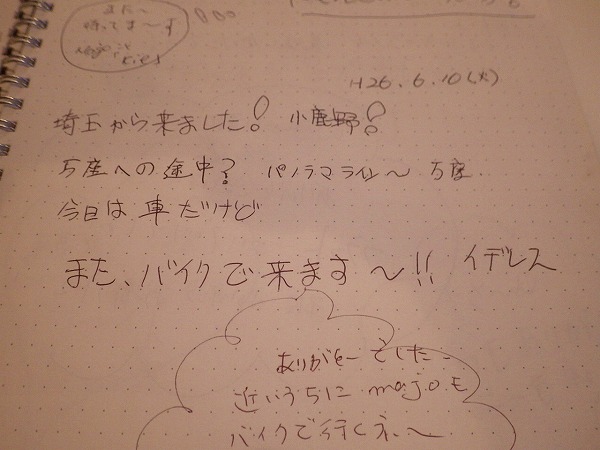 また〜
待ってま〜す
H26.6.10(火)
埼玉から来ました! 小鹿野!
万座への途中? パノラマライン〜 万座
今日は車だけど
また、バイクで来ます〜!! イデレス
ありがとーでしたー
近いうちに majo.E
バイクで行くネ〜